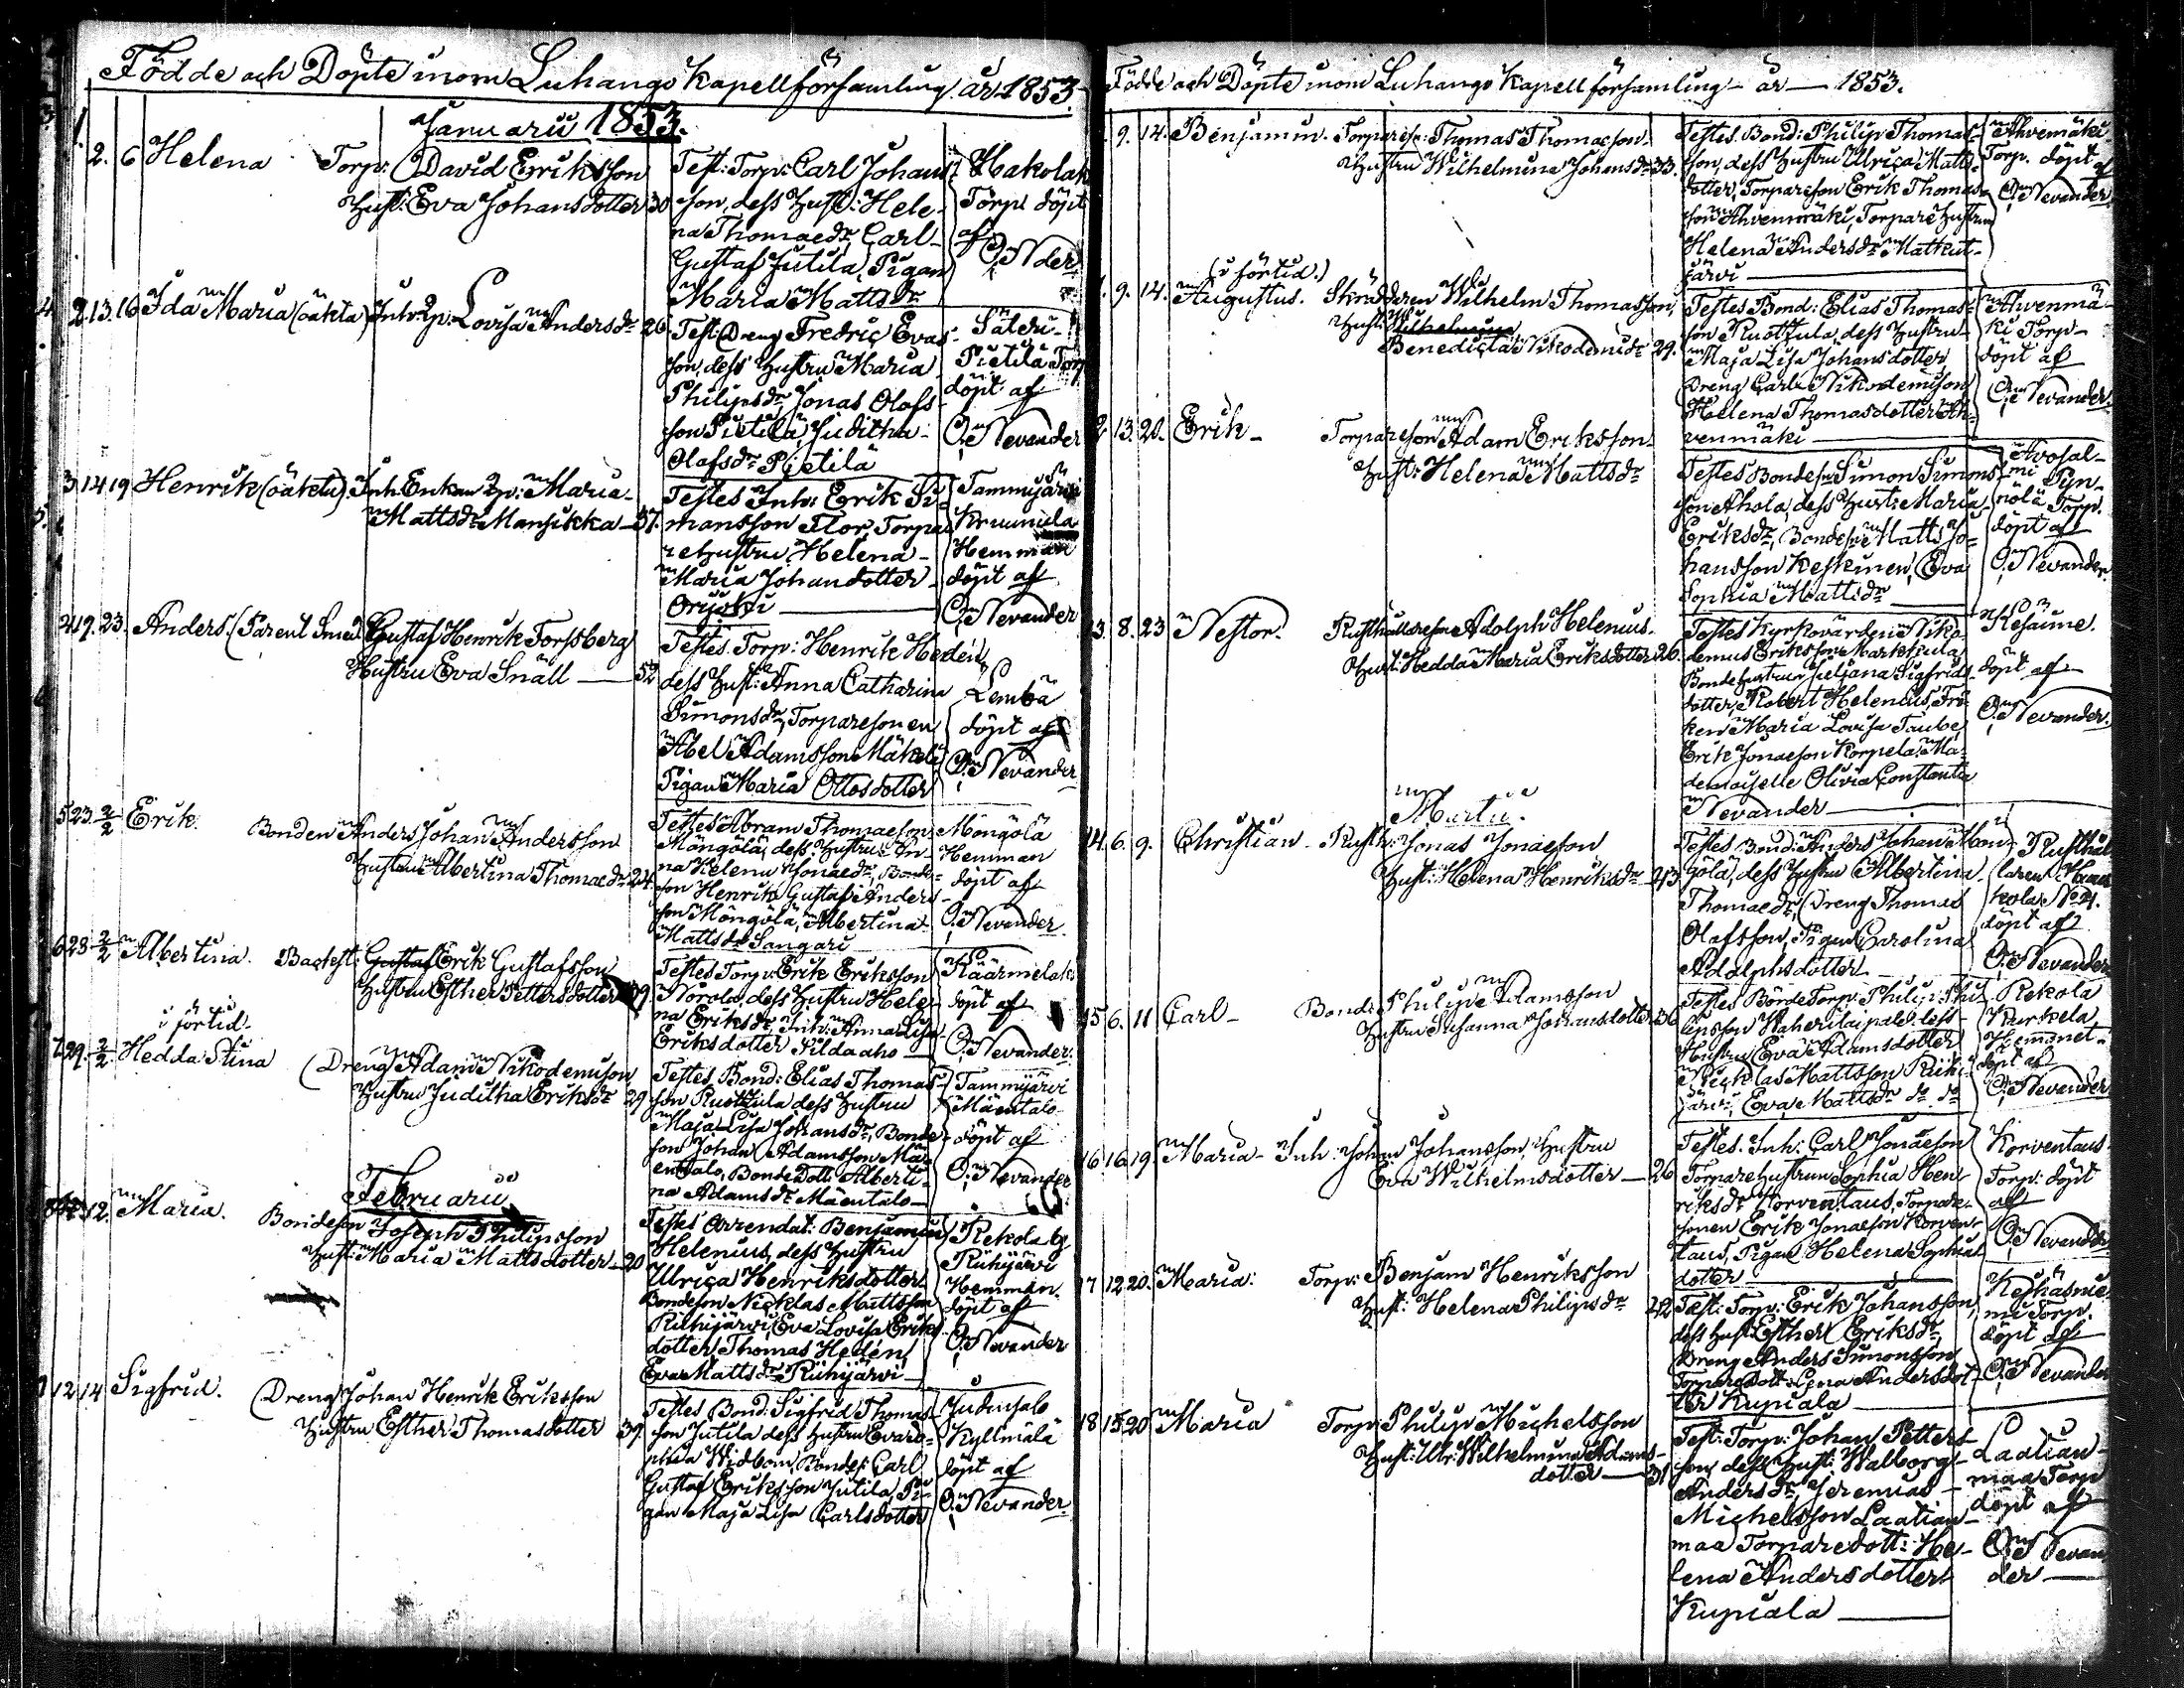 Födde och Döpte inom Luhango Kapellförsamling år 1853
Januarii 1853.
1. 2. 6 Helena Torp: David Eriksson
Hust: Eva Johansdotter 30
Test: Torp: Carl Johans-
son, dess Hust: Hele-
na Thomaedr, Carl
Gustaf Jutila, Pigan
Maria Mattsdr
Hakola
Torp döpt
af
O. Nder
2. 13. 16 Ida Maria (oäkta) Lovisa Andersdr 26
Test: Dreng Fredric Evas-
son, dess Hustru Maria
Philipsdr Jonas Olofs-
son Pietilä, Juditha
Olafsdr Pietilä
Säleri-
Pietilä Torp
döpt af
O. Nevander
3 14 19 Henrik (oäkta) Inh. Enkan Maria
Mattsdr Mansikka 37.
Testes Inh: Erik Si-
mansson Flor, Torpa-
re Hustru Helena
Maria Johansdotter
Orijoki
Tammijärvi
Krumula
Hemman
döpt af
O. Nevander
4 19. 23. Anders. Gustaf Henrik Forssberg
Hustru Eva Snäll 52
Testes. Torp: Henrik Heden,
dess Hust: Anna Catharina
Simonsdr, Torparesonen
Abel Adamsson Mäkelä
Pigan Maria Ottosdotter
Lembä
döpt af
O. Nevander
5 23. 2/2 Erik. Bonden Anders Johan Andersson
Hustru Albertina Thomaedr 24.
Testes Abram Thomaeson
Möngölä, dess Hustru An-
na Helena Jonaedr, Bonde-
son Henrik Gustaf Anders-
son Möngölä, Albertina
Mattsdr Sangari
Möngölä
Hemman
döpt af
O. Nevander
6 23 2/2 Albertina. Backst: Erik Gustafsson
Hustru Esther Pettersdotter 39
Testes Torp: Erik Eriksson
Norola, dess Hustru Hele-
na Eriksdr, Inh: Anna Lisa
Eriksdotter Sildaaho
Käärmelak
döpt af
O. Nevander
i förtid.
7 29. 2/2 Hedda Stina Dreng Adam Nikodemison
Hustru Juditha Eriksdr 29
Testes, Bond: Elias Thomas-
son Ruottula dess Hustru
Maja Lisa Johansdr, Bonde-
son Johan Adamsson Mä-
entalo, Bonde Dott: Alberti-
na Adamsdr Mäentalo
Tammijärvi
Mäentalo
döpt af
O. Nevander
Februarii
12. Maria. Bondeson Joseph Philipsson
Hust: Maria Mattsdotter 20
Testes Arrendat: Benjamin
Helenius, dess Hustru
Ulrica Henriksdotter
Bondeson Nicklas Mattsson
Riihijärvi, Eva Lovisa Eriks-
dotter, Thomas Hedén
Eva Mattsdr Riihijärvi
Rekola
Riihijärvi
Hemman.
döpt af
O. Nevander
12 14 Sigfrid. Dreng Johan Henrik Eriksson
Hustru Esther Thomasdotter 39.
Testes Bond: Sigfrid Thomas-
son Jutila dess Hustru Evaso-
phia Widbom, Bondes: Carl
Gustaf Eriksson Jutila, Pi-
gan Maja Lisa Carlsdotter
Judinsalo
Kyllmälä
döpt af
O. Nevander
Födde och Döpte inom Luhango Kapellförsamling år 1853.
9. 14. Benjamin. Torpareson: Thomas Thomaeson
Hustru Wilhelmina Johansdr 33.
Testes. Bond: Philip Thomas-
son, dess Hustru Ulrica Matts-
dotter, Torpareson Erik Thomas-
son Ahvenmäki, Torpare Hustrun
Helena Andersdr Matkut-
järvi
Ahvenmäki
Torp. döpt
af
O. Nevander
(i förtid.)
9. 14. Augustus. Skräddaren Wilhelm Thomasson,
Hust:
Benedicta Nikodemidr 29.
Testes Bond: Elias Thomas-
son Ruottula, dess Hustru
Maja Lisa Johansdotter
Dreng Carl Nikodemison
Helena Thomasdotter Ah-
venmäki
Ahvenmä-
ki Torp
döpt af
O. Nevander
13. 20. Erik Torpareson Adam Eriksson
Hust: Helena Mattsdr
Testes Bondeson Simon Simons-
son Ahola, dess Hust: Maria
Eriksdr, Bondeson Matts Jo-
hansson Keskinen, Eva
Sophia Mattsdr
Avosal-
mi Pyn-
nölä Torp.
döpt af
O. Nevander
13. 8. 23 Nestor. Rusthållareson Adolph Helenius.
Hust: Hedda Maria Eriksdotter 26.
Testes Kyrkovärden Niko-
demus Eriksson Markkula
Bonde Hustrun Juljana Sigfrids-
dotter, Robert Helenius, Frö-
ken Maria Lovisa Taube
Erik Jonaeson Korpela Ma-
demoiselle Olivia Constantia
Nevander
döpt af
O. Nevander.
Martii.
14. 6. 9. Christian Rusth: Jonas Jonaeson
Hust: Helena Henriksdr 43
Testes Bond: Anders Johan Mön-
gölä, dess Hustru Albertina
Thomaedr, Dreng Thomas
Olafsson, Pigan Carolina
Adolphsdotter
Rusthål-
laren
kola No 4.
döpt af
O. Nevander
15 6. 11 Carl Bond: Philip Adamsson
Hustru Susanna Johansdotter 36
Testes Torp: Philip Phi-
lipsson dess
Hustru Eva Adamsdotter
Nicklas Mattsson Riihi-
järvi, Eva Mattsdr do do
Rekola
Kurkela
Hemmanet
döpt af
O. Nevander
16. 16. 19. Maria Inh: Johan Johansson, Hustru
Eva Wilhelmsdotter 26
Testes. Inh: Carl Jonaeson
Torpare Hustrun Sophia Hen-
riksdr Korventaus, Torpare-
sonen Erik Jonaeson Korven-
taus, Pigan Helena Sophia
dotter
Korventaus
Torp: döpt
af
O. Nevander
17 12 20. Maria: Torp: Benjam Henriksson
Hust: Helena Philipsdr 42
Test: Torp: Erik Johansson,
dess Hust: Esther Eriksdr,
Dreng Anders Simonsson
Torparedott: Lena Andersdot-
ter Kupiala
mi Torp.
döpt af
O. Nevander
18 15 20 Maria Torp: Philip Michelsson
Hust: Ulr: Wilhelmina Adams-
dotter 31
Test: Torp: Johan Petters-
son, dess Hust: Walborg
Andersdr, Jeremias
Michelsson Laatian-
maa Torparedott: He-
lena Andersdotter
Kupiala
Laatian-
maa Torp
döpt af
O. Nevan-
der